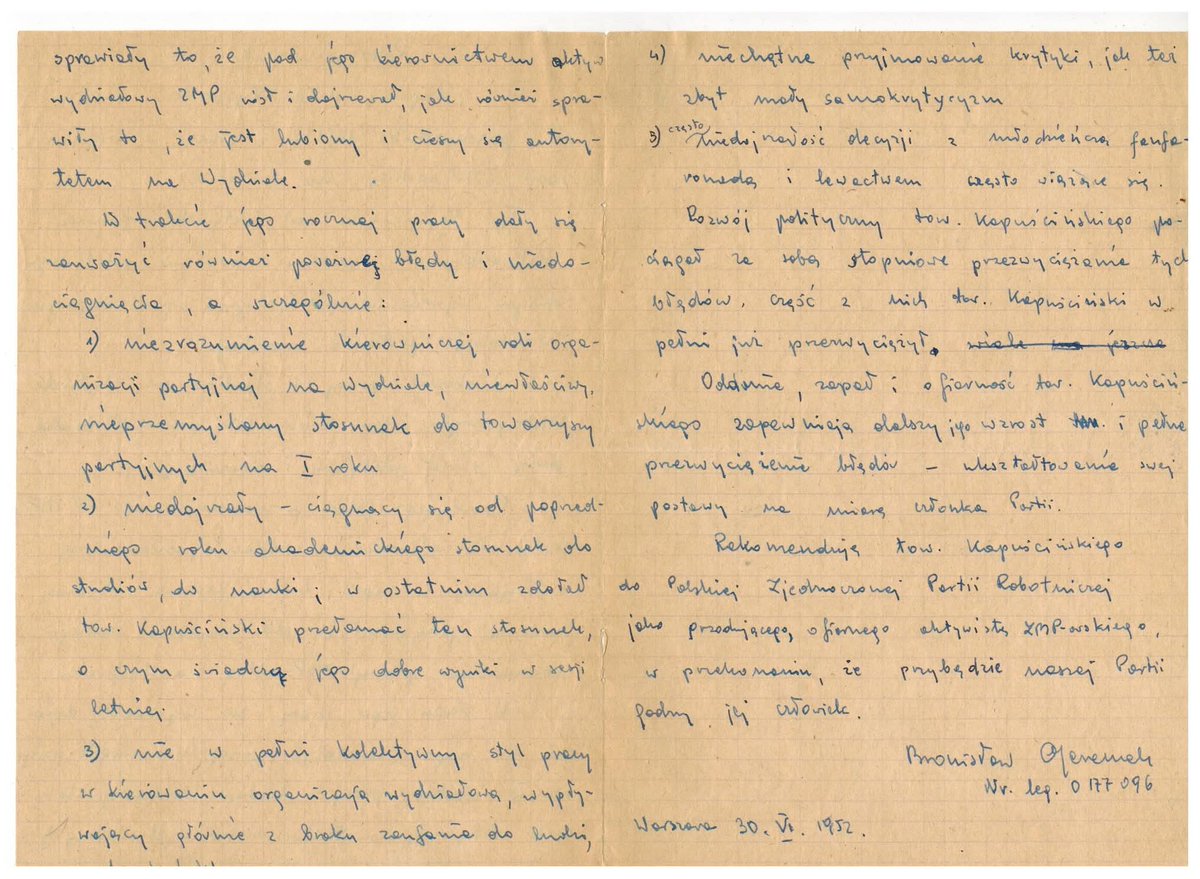 sprawiały to, że pod jego kierownictwem aktyw
wydziałowy ZMP rósł i dojrzewał, jak również spra-
wiły to, że jest lubiony i cieszy się autory-
tetem na Wydziale.
W trakcie jego rocznej pracy dały się
zauważyć również poważne błędy i niedo-
ciągnięcia, a szczególnie:
1) niezrozumienie kierowniczej roli orga-
nizacji partyjnej na wydziale, niewłaściwy,
nieprzemyślany stosunek do towarzyszy
partyjnych na I roku
2) niedojrzały – ciągnący się od poprzed-
niego roku akademickiego stosunek do
studiów, do nauki; w ostatnim zdołał
tow. Kapuściński przełamać ten stosunek,
o czym świadczą jego dobre wyniki w sesji
letniej.
3) nie w pełni kolektywny styl pracy
w kierowaniu organizacją wydziałową, wypły-
wający głównie z braku zaufania do ludzi,
4) niechętne przyjmowanie krytyki, jak też
zbyt mały samokrytycyzm
5) często niedojrzałość decyzji z młodzieńczą fanfa-
ronadą i lewactwem często wiążące się.
Rozwój polityczny tow. Kapuścińskiego po-
ciągał za sobą stopniowe przezwyciężanie tych
błędów. Część z nich tow. Kapuściński w
pełni już przezwyciężył. wiele ma jeszcze
Oddanie, zapał i ofiarność tow. Kapuściń-
skiego zapewniają dalszy jego wzrost i pełne
przezwyciężenie błędów – ukształtowanie swej
postawy na miarę członka Partii.
Rekomenduję tow. Kapuścińskiego
do Polskiej Zjednoczonej Partii Robotniczej
jako przodującego, ofiarnego aktywistę ZMP-owskiego,
w przekonaniu, że przybędzie naszej Partii
godny jej człowiek.
Bronisław Geremek
Nr. leg. 0177096
Warszawa 30. VI. 1952.